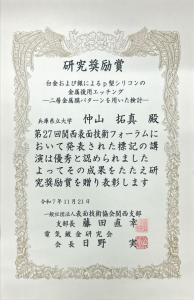 研究奨励賞
白金および銀によるp型シリコンの
金属援用エッチング
―二等金属膜パターンを用いた検討―
兵庫県立大学 仲山 拓真 殿
第27回関西表面技術フォーラムに
おいて発表された標記の講
演は優秀と認められました
よってその成果をたたえ研
究奨励賞を贈り表彰します
令和7年11月21日
一般社団法人表面技術協会関西支部
支部長 藤田直幸
電気鍍金研究会
会長 日野 実